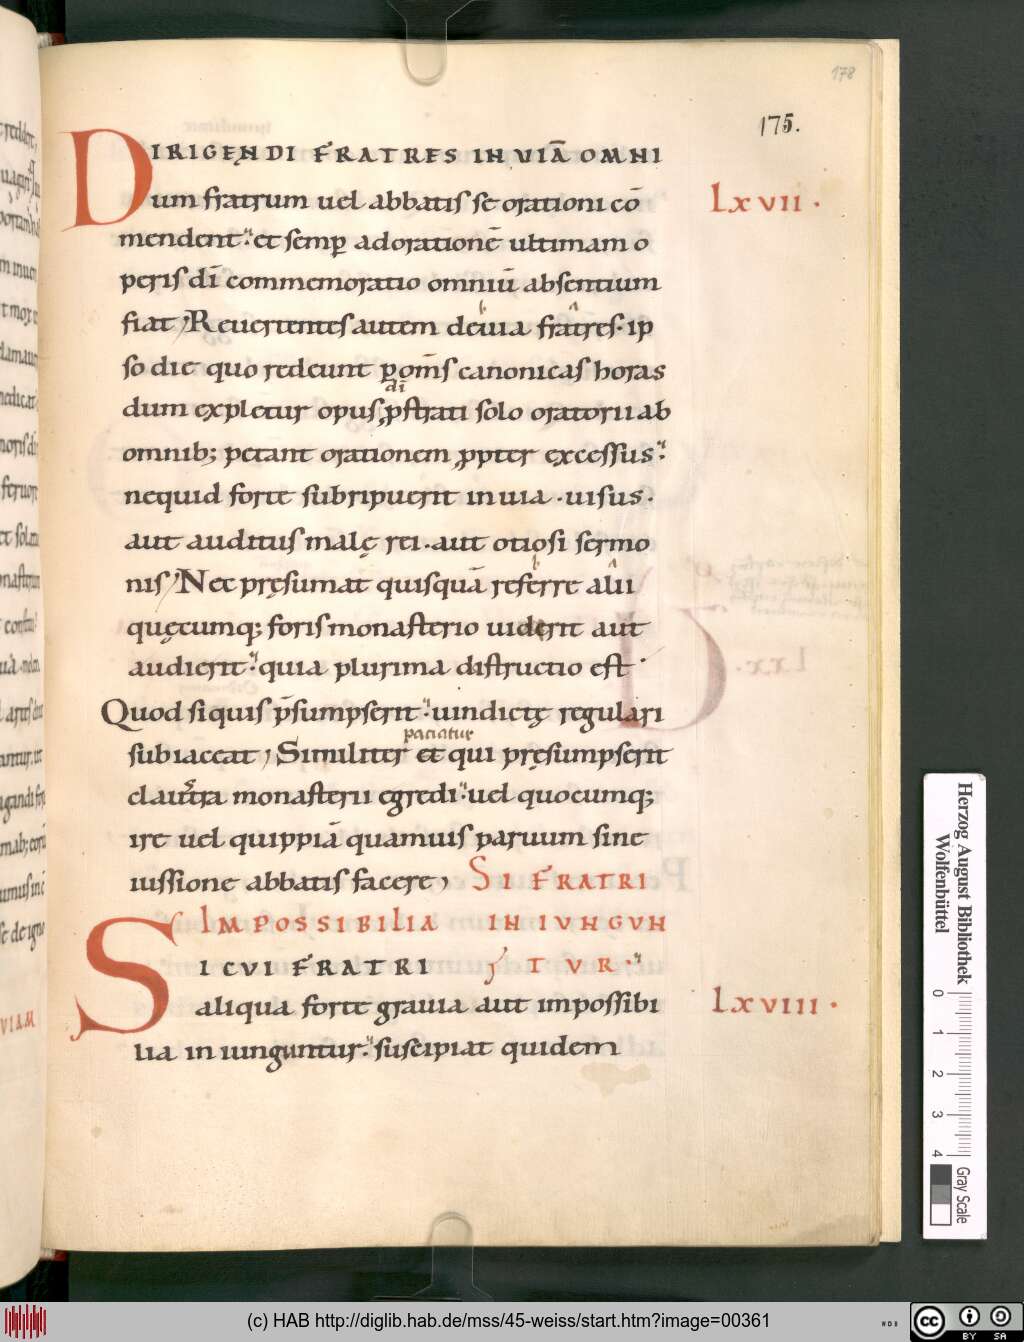 178
175.
DIRIGENDI FRATRES IN VIĀ OMNI
um fratrum uel abbatis se orationi cō
Lxvii·
mendent· et semp̱ ad orationē ultimam o
peris dī commemoratio omniū absentium
fiat, Reuertentes autem de uia fratres· ip
so die quo redeunt p̱ om̄s canonicas horas
dī
dum expletur opus, ꝓstrati solo oratorii ab
omnib; petant orationem ꝓpter excessus·
nequid forte subripuerit in uia · uisus·
aut auditus malę rei · aut otiosi sermo
nis, Nec pręsumat quisquā referre alii
quęcumq; foris monasterio uiderit aut
audierit· quia plurima distructio est·
Quod siquis p̄sumpserit· uindictę regulari
paciatur
subiaceat, Similiter et qui pręsumpserit
claustra monasterii egredi· uel quocumq;
ire uel quippiā quamuis paruum sine
iussione abbatis facere, SI FRATRI
IMPOSSIBILIA INIUNGUN
SICUI FRATRI TUR·
aliqua forte grauia aut impossibi
Lxviii·
lia in iunguntur· suscipiat quidem
Herzog August Bibliothek
Wolfenbüttel
0 1 2 3 4
Gray Scale
(c) HAB http://diglib.hab.de/mss/45-weiss/start.htm?image=00361
cc BY SA